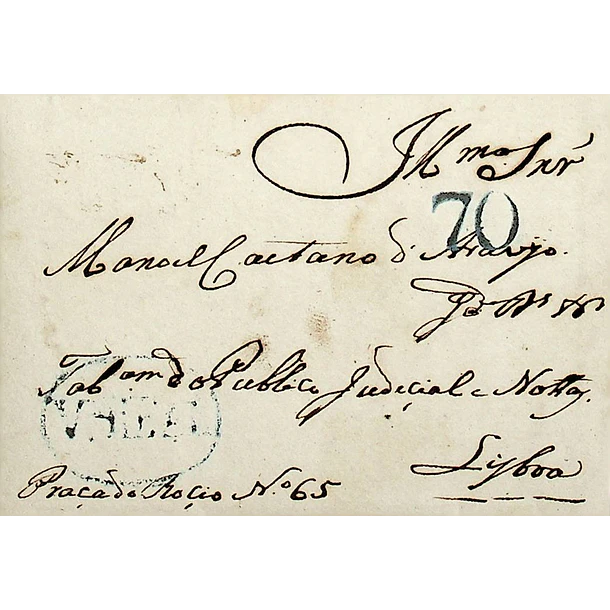 Illmo Snr
70
Manoel Caetano d'Araujo.
Tabam do Publico Judicial e Nottas,
Lisboa
Praça do Rocio No. 65